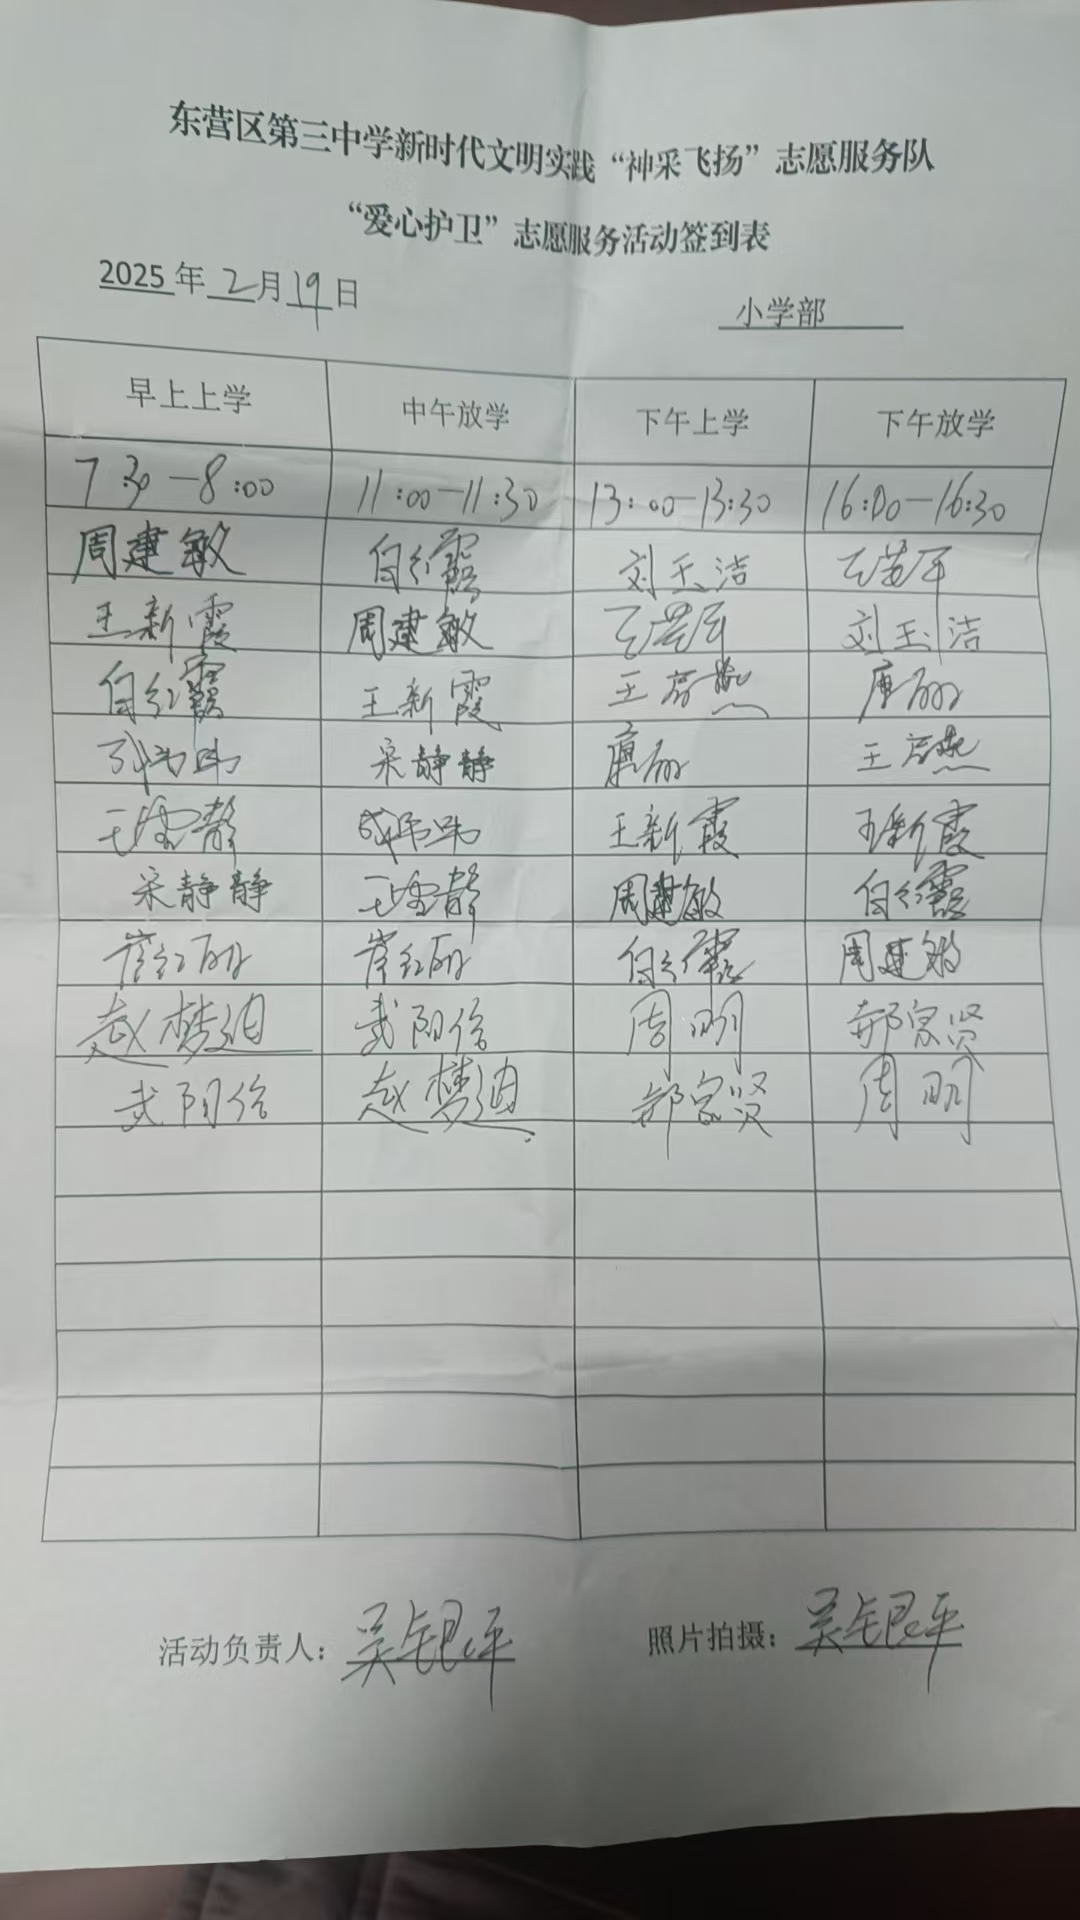 东营区第三中学新时代文明实践“神采飞扬”志愿服务队
“爱心护卫”志愿服务活动签到表
2025年2月19日 小学部
早上上学 中午放学 下午上学 下午放学
7:30—8:00 11:00—11:30 13:00—13:30 16:00—16:30
周建敏 白红霞 刘玉洁
王新霞 周建敏 刘玉洁
白红霞 王新霞 王彦燕 康丽
宋静静 康丽 王彦燕
王雪静 王新霞 王新霞
宋静静 王雪静 周建敏 白红霞
崔红丽 崔红丽 白红霞 周建敏
赵梦迪 武阳信 周明 郝家贤
武阳信 赵梦迪 郝家贤 周明
活动负责人：吴银平 照片拍摄：吴银平